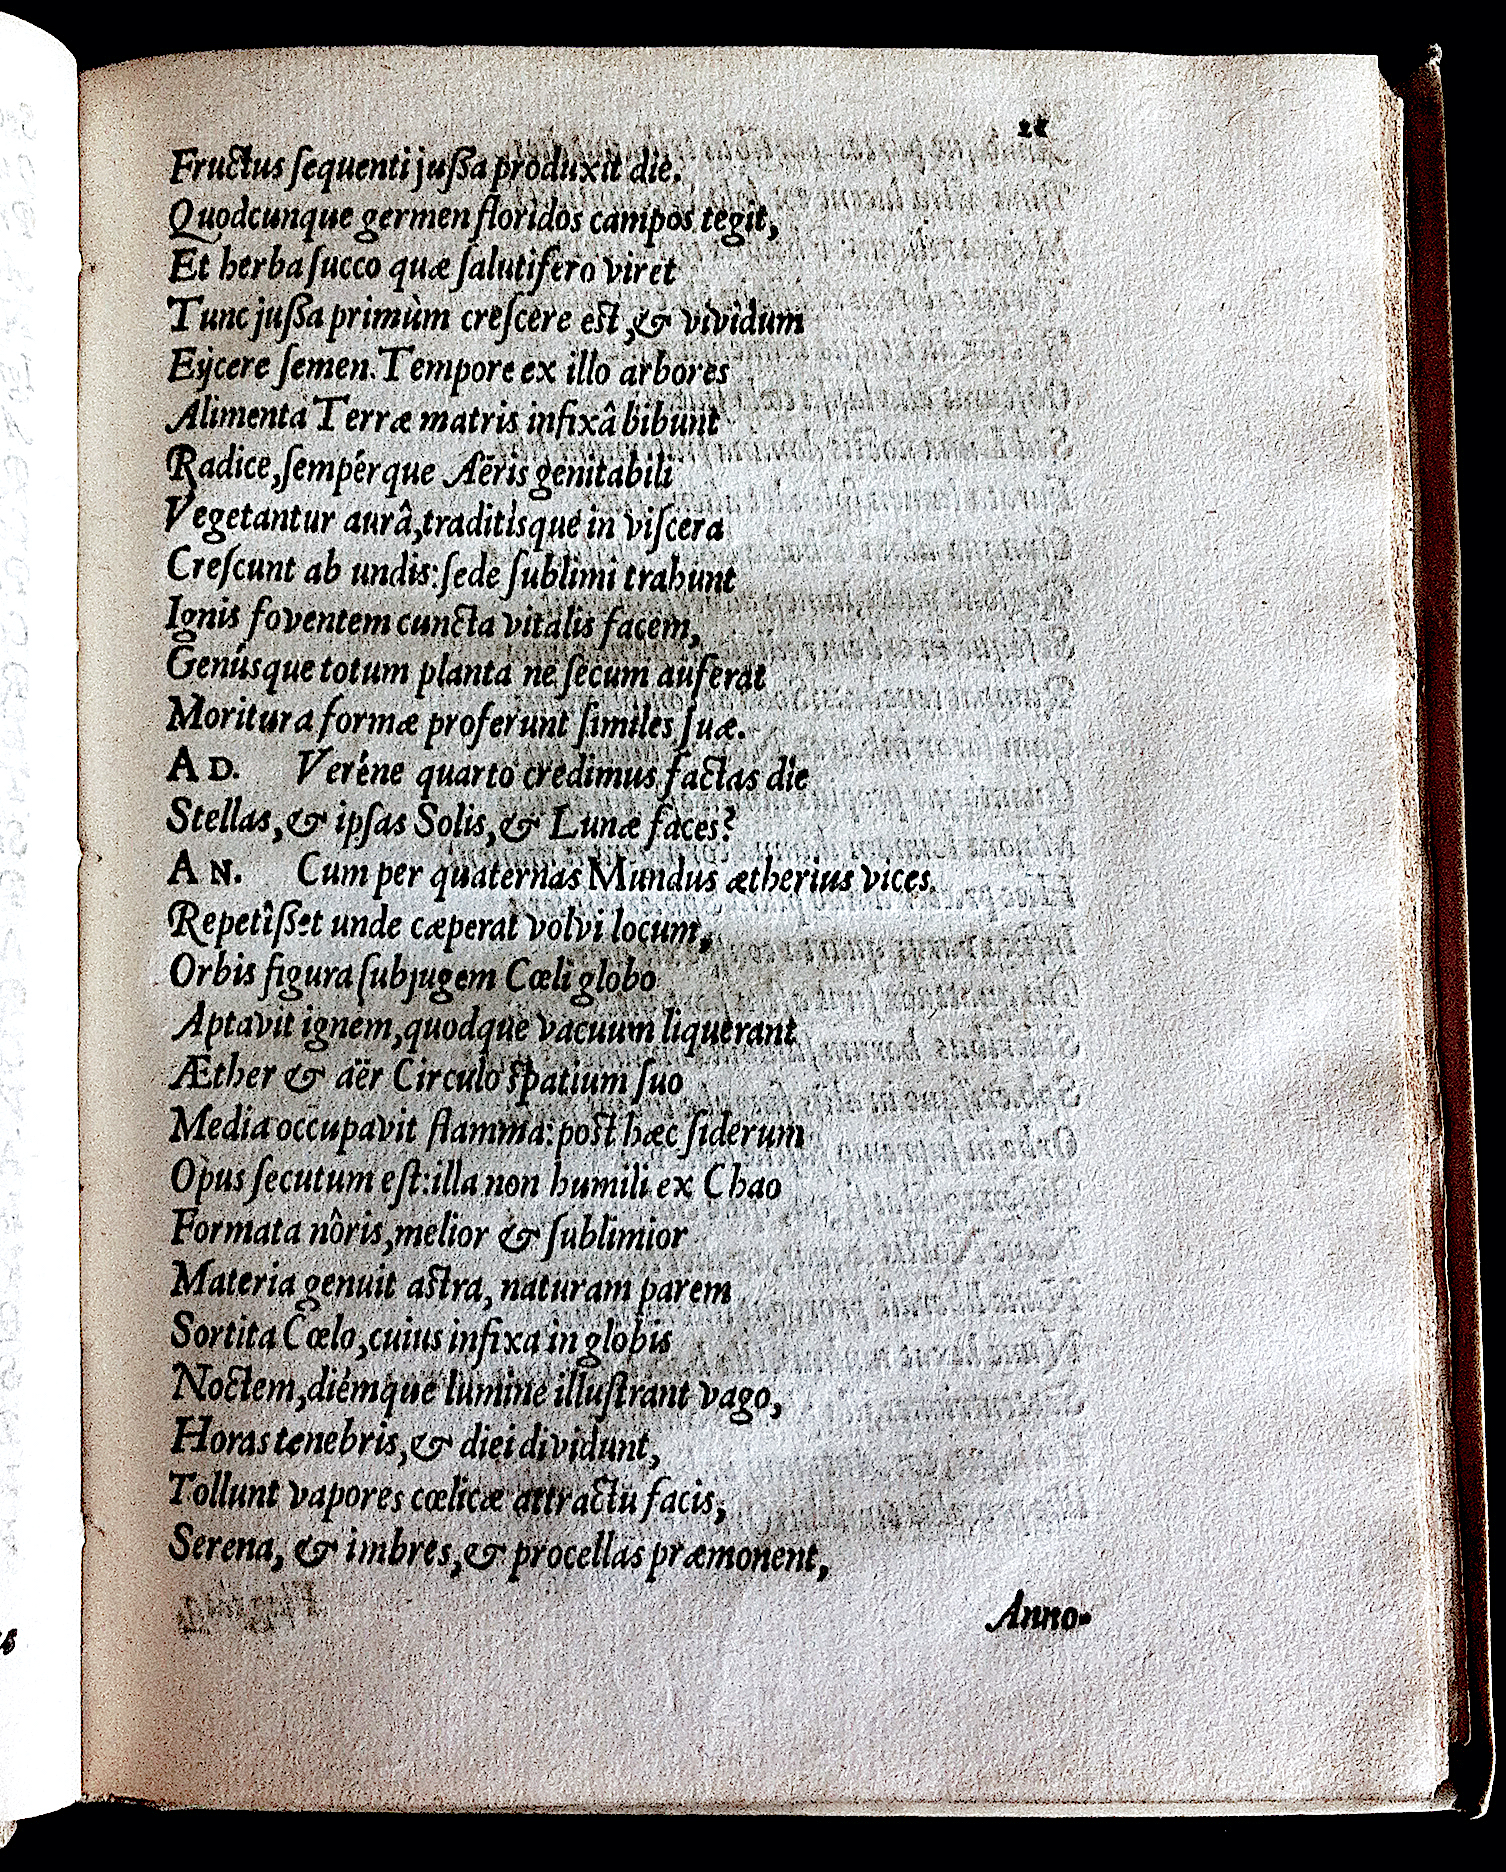 Fructus ſequenti juſſa produxit die.
Quodcunque germen floridos campos tegit,
Et herba ſucco quæ ſalutifero viret
Tunc juſſa primùm creſcere eſt, & vividum
Eijcere ſemen. Tempore ex illo arbores
Alimenta Terræ matris infixâ bibunt
Radice, ſempérque Aëris genitabili
Vegetantur aurâ, traditisque in viſcera
Creſcunt ab undis: ſede ſublimi trahunt
Ignis foventem cuncta vitalis facem,
Genúsque totum planta ne ſecum auferat
Moritura formæ proferunt ſimiles ſuæ.
AD. Veréne quarto credimus factas die
Stellas, & ipſas Solis, & Lunæ faces?
AN. Cum per quaternas Mundus ætherius vices
Repetîſſet unde cæperat volvi locum,
Orbis figura ſubjugem Cœli globo
Aptavit ignem, quodque vacuum liquerant
Æther & aër Circulo ſpatium ſuo
Media occupavit flamma: poſt hæc ſiderum
Opus ſecutum eſt: illa non humili ex Chao
Formata nôris, melior & ſublimior
Materia genuit aſtra, naturam parem
Sortita Cœlo, cuius infixa in globis
Noctem, diémque lumine illuſtrant vago,
Horas tenebris, & diei dividunt,
Tollunt vapores cœlicæ attractu facis,
Serena, & imbres, & procellas præmonent,
Anno-